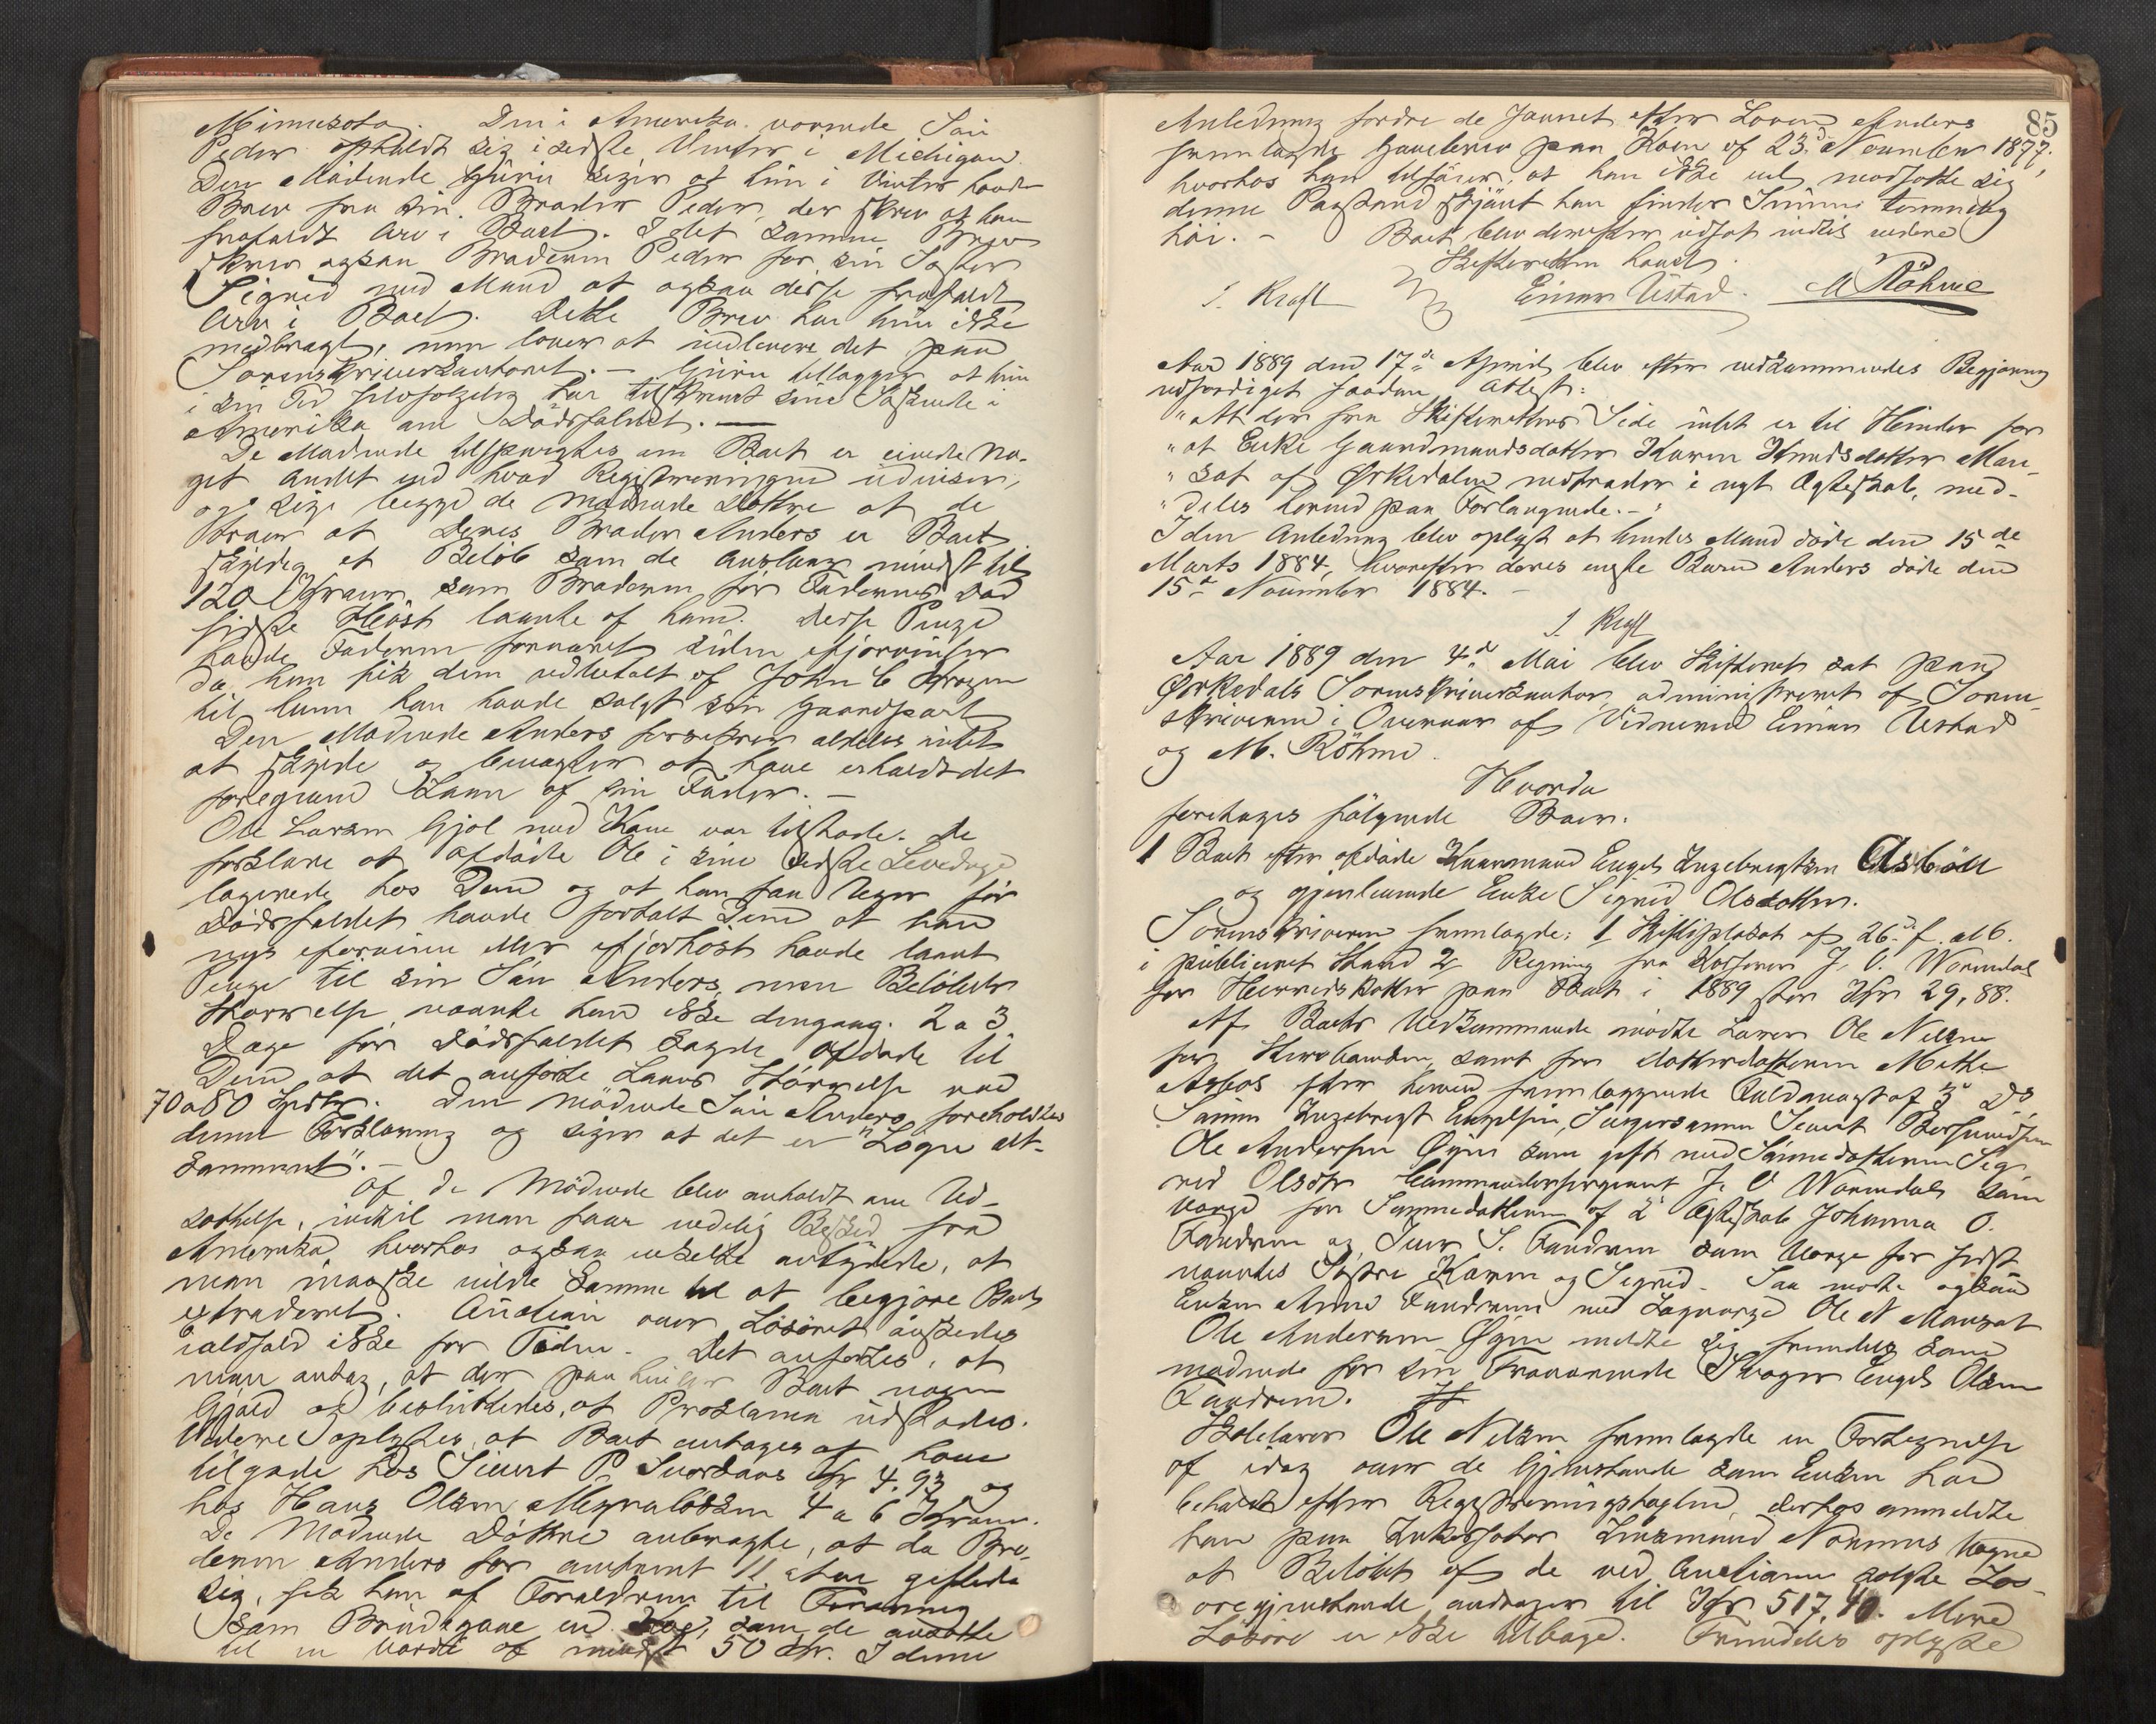 Minnesota. Den i Amerika værende Søn
Peder opholdt sig i sidste Vinter i Michigan.
Den Mødende Guru siger at hun i Vinter havde
Brev fra sin Broder Peder, der skrev at han
frafaldt Arv i Boet. I det samme Brev
skrev ogsaa Broderen Peder for sin Søster
Sigrid med Mand at ogsaa disse frafaldt
Arv i Boet. Dette Brev har hun ikke
medbragt, men lover at indlevere det paa
Sorenskriverkontoret. – Guru tillægger at hun
i sin Tid har tilskrevet sine Søskende i
Amerika om Dødsfaldet. —
De Mødende tilspurgtes om Boet er eiende No-
get andet end hvad Registreringen udviser,
og sige begge de mødende Døttre at de
troer at deres Broder Anders er Boet
skyldig et Beløb som de anslaar mindst til
120 Kroner, som Broderen før Faderens Død
sidste Høst laante af ham. Disse Penge
havde Faderen forvaret siden ifjorvinter
da han fik dem udbetalt af John E
til hvem han havde solgt sin Gaardpart
Den Mødende Anders forsikrer aldeles intet
at skylde og benægter at have erholdt det
foregivne Laan af sin Fader. –
Ole Larsen Gjøl med Kone var tilstede. De
forklare at afdøde Ole i sine sidste Levedage
logerede hos Dem og at han faa Uger før
Dødsfaldet havde fortalt Dem at han
nys iforveien eller ifjorhøst havde laant
Penge til sin Søn Anders, men Beløbets
Størrelse nævnte han ikke dengang. 2 a 3
Dage før Dødsfaldet sagde Afdøde til
Dem at det anførte Laans Størrelse var
70 a 80 Spdlr. Den mødende Søn Anders foreholdtes
denne Forklaring og siger at det er "Løgn alt-
sammen". –
Af de Mødende blev anholdt om Ud-
sættelse, indtil man faar endelig Besked fra
Amerika, hvorhos ogsaa enkelte antydede, at
man maaske vilde komme til at begjære Boet
extraderet. Auction over Løsøret ønskedes
ialdfald ikke for Tiden. Det anførtes, at
man antog, at der paa hviler Boet nogen
Gjæld og besluttedes, at Proklama udstædes.
Videre oplystes, at Boet antages at have
tilgode hos Sivert P. Kr 4.93 og
hos Hans Olsen 4 a 6 Kroner.
De Mødende Døttre anbragte, at da Bro-
deren Anders for omtrent 11 Aar giftede
sig, fik han af Forældrene til Foræring
som Brudegave en Ko, som de ansatte
til en Værdi af mindst 50 Kr. I denne
85
Anledning fordre de Jævnet efter Loven. Anders
fremlagde Gavebrev paa Koen af 23de November 1877,
hvorhos han tilføier, at han ikke vil modsætte sig
denne Paastand skjønt han finder Summen temmelig
høi. – Boet blev derefter udsat indtil videre
Skifteretten hævet.
I. Kraft Einar Ustad. M Röhme
Aar 1889 den 17de April blev efter vedkommendes Begjæring
udfærdiget saadan Attest:
"At der fra Skifterettens Side intet er til Hinder for
"at Enke Gaardmandsdatter Karen Knudsdatter Mon-
"sæt af Ørkedalen indtræder i nyt Ægteskab, med-
"deles herved paa Forlangende. – "
I den Anledning blev oplyst at hendes Mand døde den 15de
Marts 1884, hvorefter deres eneste Barn Anders døde den
15de November 1884. –
I. Kraft
Aar 1889 den 4de Mai blev Skifteret sat paa
Ørkedals Sorenskriverkontor, administreret af Soren-
skriveren i Overvær af Vidnerne Einar Ustad
og M. Röhme.
Hvorda
foretoges følgende Boer.
1 Boet efter afdøde Kaarmand Engel Ingebrigtsen Asböll
og gjenlevende Enke Sigrid Olsdatter.
Sorenskriveren fremlagde: 1 Skifteplakat af 26de f. M.
i publiceret Stand 2 Regning fra Kasserer J. O. Wormdal
for Herredskatter paa Boet i 1889 stor Kr 29,88.
Af Boets Vedkommende mødte Lærer Ole Nilsen
for Stervboenken, samt for Datterdatteren Mette
Aasbos efter herved fremlæggende Fuldmagt af 3de ds
Sønnen Ingebrigt Engelsen, Svigersønnen Sivert
Ole Andersen Øyen som gift med Sønnedatteren Sig-
rid Olsdtr Commandersergeant J. O Wormdal som
Værge for Sønnedatteren af 2det Ægteskab Johanna O.
Fandrem og Iver S. Fandrem som Værge for sidst-
nævntes Søstre Karen og Sigrid. Saa mødte ogsaa
Enken Anne Fandrem med Lagværge Ole N Monsæt
Ole Andersen Øyen meldte sig fremdeles som
mødende for sin fraværende Svoger Engel Olsen
Fandrem.
Skolelærer Ole Nilsen fremlagde en Fortegnelse
af idag over de Gjenstande som Enken har
beholdt efter Registreringstaxten, derhos anmeldte
han paa Inkassator Lensmand Vegne
at Beløbet af de ved Auctionen solgte Løs-
øregjenstande andrager til Kr 517,40. Mere
Løsøre er ikke tilbage. Fremdeles oplyste